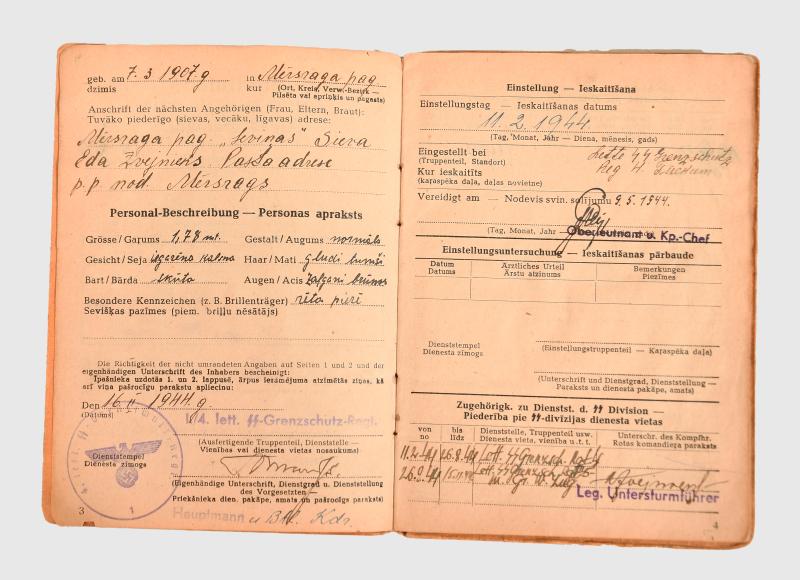 geb. am 7. 3 1907. g in Mērsraga pag.
dzimis kur (Ort, Kreis, Verw.-Bezirk —
Pilsēta vai apriņķis un pagasts)
Anschrift der nächsten Angehörigen (Frau, Eltern, Braut):
Tuvāko piederīgo (sievas, vecāku, līgavas) adrese:
Mērsraga pag. Sieva
Eda Zvejnieks Pasta adrese
p. p. nod. Mērsrags
Personal-Beschreibung — Personas apraksts
Grösse/Garums 1,78 mt. Gestalt/Augums normāls
Gesicht/Seja Haar/Mati gludi
Bart/Bārda skūta Augen/Acis
Besondere Kennzeichen (z. B. Brillenträger) rēta pierē
Sevišķas pazīmes (piem. briļļu nēsātājs)
Die Richtigkeit der nicht umrandeten Angaben auf Seiten 1 und 2 und der
eigenhändigen Unterschrift des Inhabers bescheinigt:
Īpašnieka uzdotās 1. un 2. lappusē, ārpus ierāmējuma atzīmētās ziņas, kā
arī viņa pašrocīgu parakstu apliecinu:
Den 16. II 1944. g
(Datums) I/4. lett. SS-Grenzschutz-Regt.
(Ausfertigende Truppenteil, Dienststelle —
Vienības vai dienesta vietas nosaukums)
Dienststempel
Dienesta zīmogs
(Eigenhändige Unterschrift, Dienstgrad u. Dienststellung
des Vorgesetzten —
Priekšnieka dien. pakāpe, amats un pašrocīgs paraksts)
Hauptmann u. Btl. Kdr.
3 1
Einstellung — Ieskaitīšana
Einstellungstag — Ieskaitīšanas datums
11. 2. 1944
(Tag, Monat, Jahr — Diena, mēnesis, gads)
Eingestellt bei Lett. SS Grenzschutz
(Truppenteil, Standort) Reg 4.
Kur ieskaitīts
(kaŗaspēka daļa, daļas novietne)
Vereidigt am — Nodevis svin. solījumu 9. 5. 1944.
(Tag, Monat, Jahr —
Oberleutnant u. Kp.-Chef
Einstellungsuntersuchung — Ieskaitīšanas pārbaude
Datum Ärztliches Urteil Bemerkungen
Datums Ārstu atzinums Piezīmes
Dienststempel
Dienesta zīmogs
(Einstellungstruppenteil — Kaŗaspēka daļa)
(Unterschrift und Dienstgrad, Dienststellung —
Paraksts un dienesta pakāpe, amats)
Zugehörigk. zu Dienstst. d. SS Division —
Piederība pie SS-divīzijas dienesta vietas
von bis Dienststelle, Truppenteil usw. Unterschr. des Kompfhr.
no līdz Dienesta vieta, vienība u. t. t. Rotas komandiera paraksts
11. 2. 44 26. 8. 44 Lett. SS Grenzsch.
26. 8. 44 15. Lett. SS Grenzsch.
Leg. Untersturmführer
4